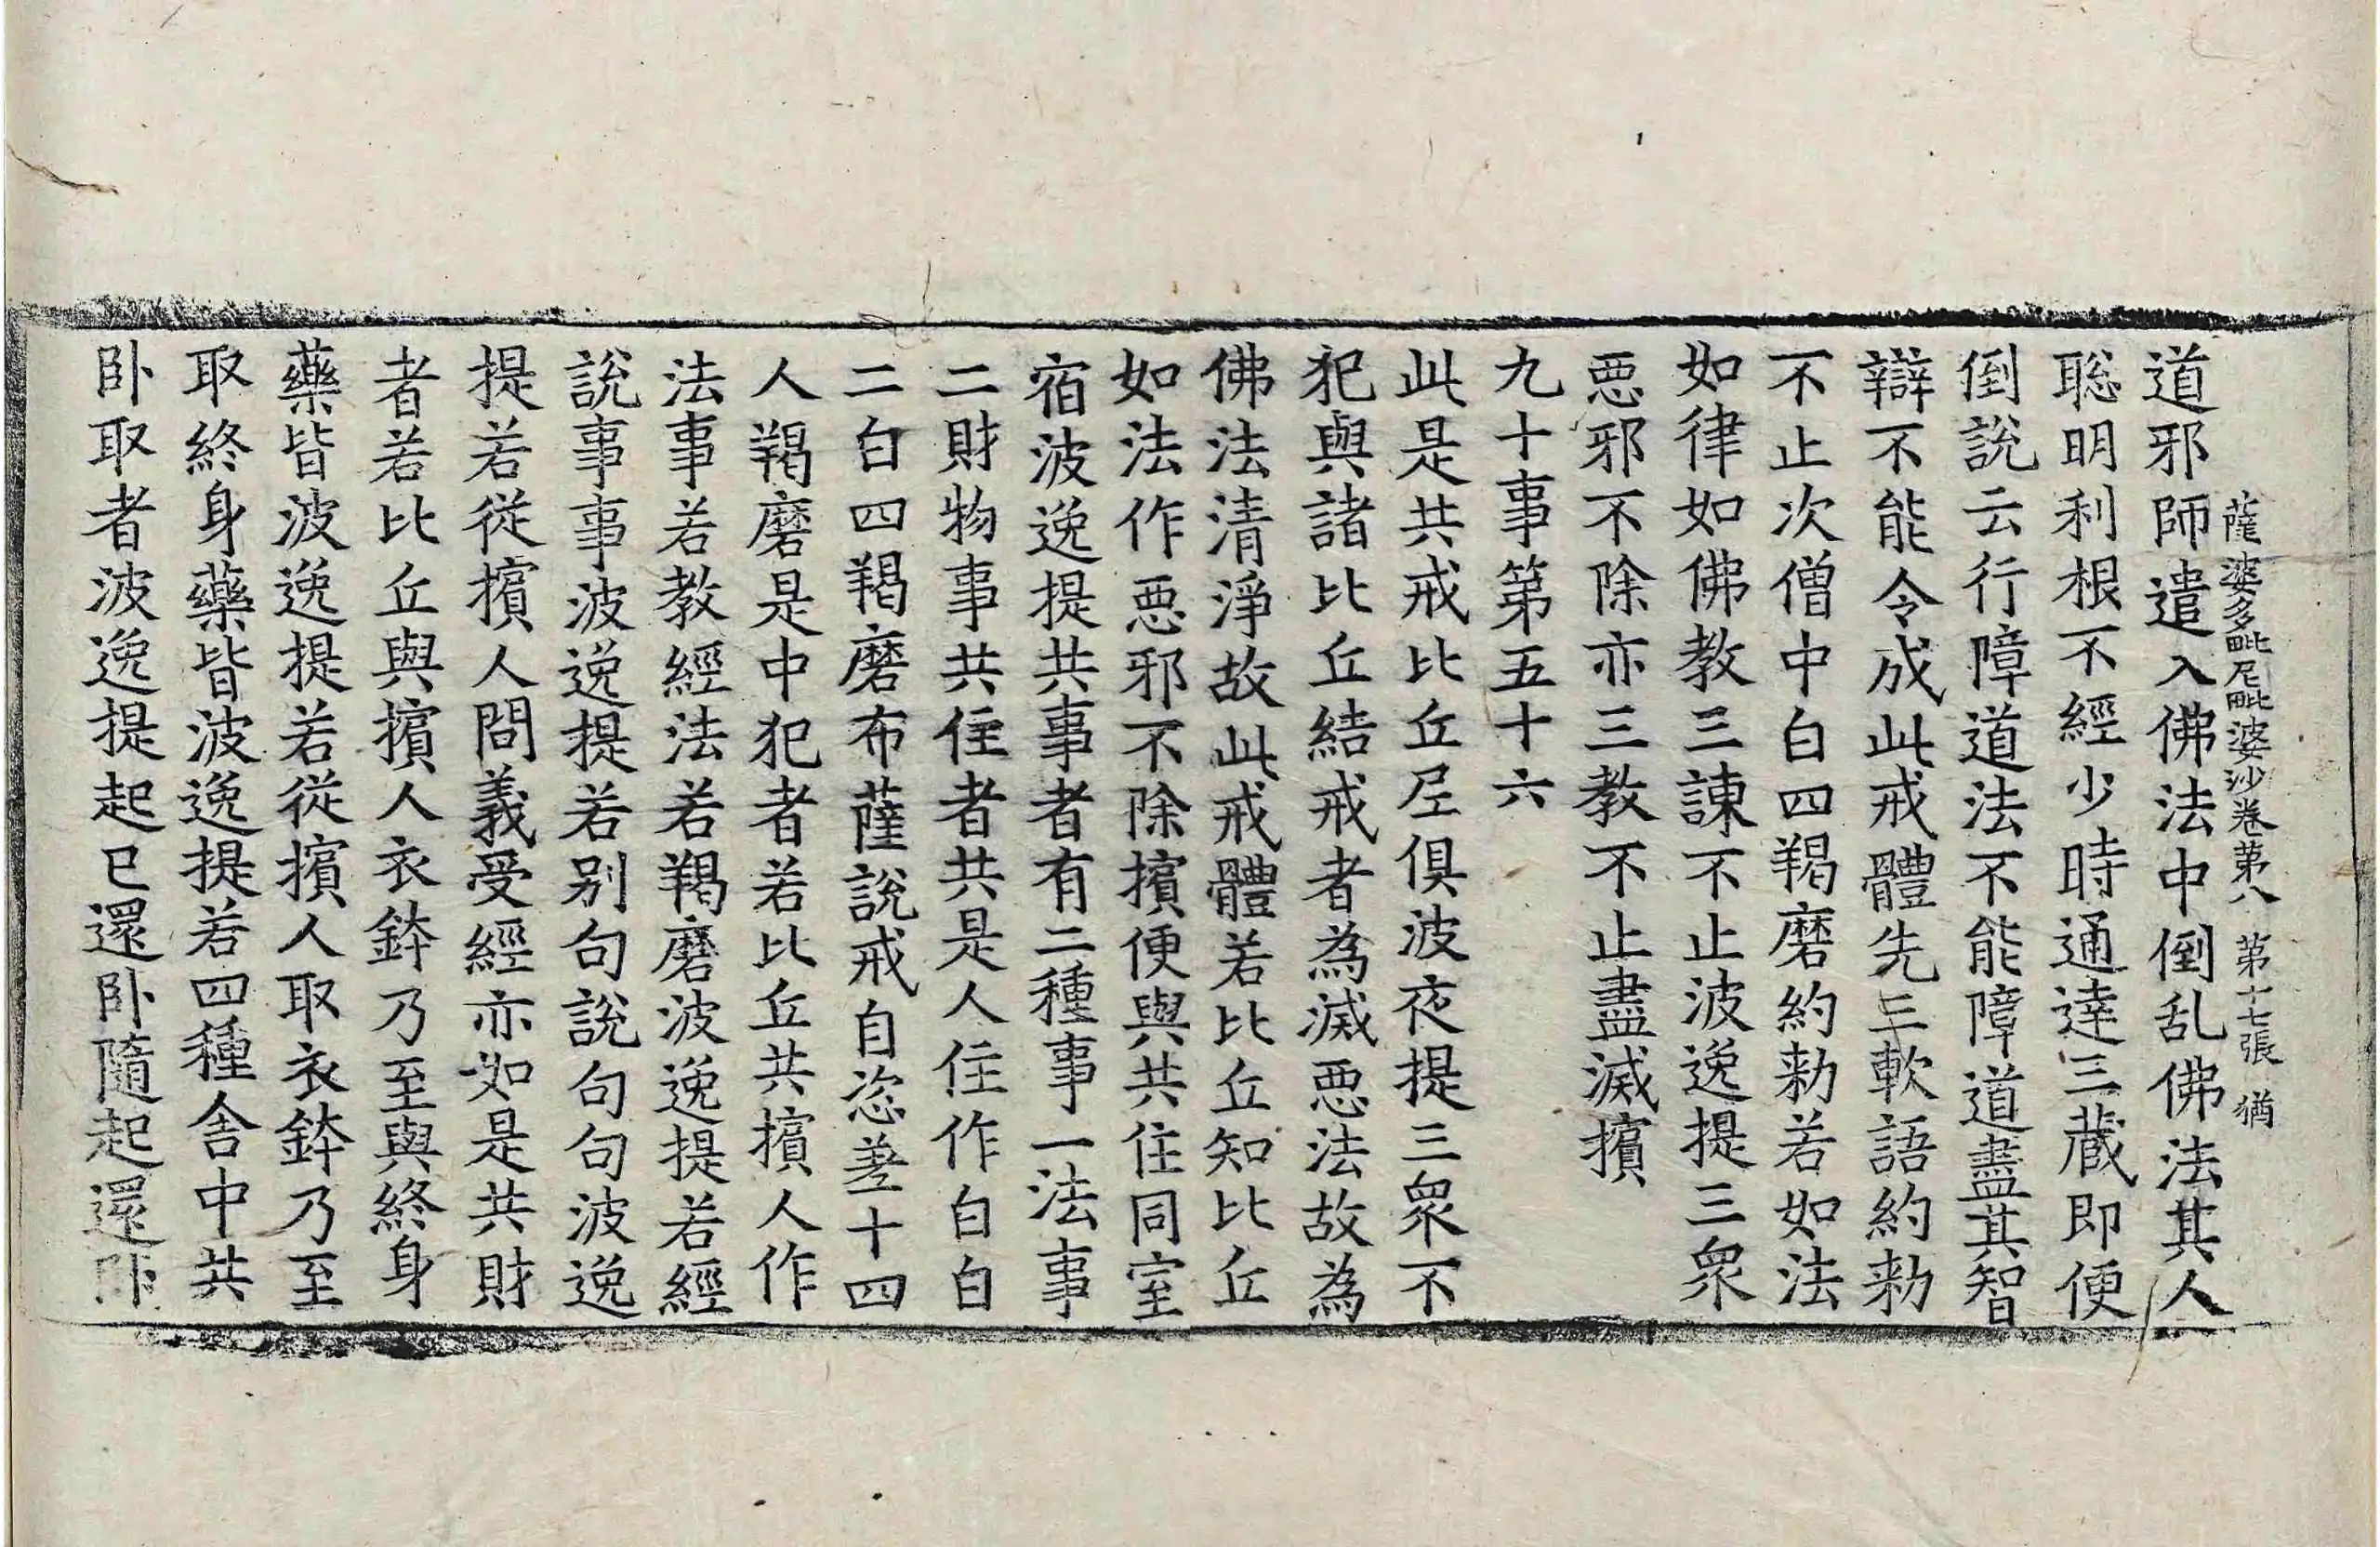 薩婆多毗尼毗婆沙卷第八 第十七張 猶
道邪師遣入佛法中倒乱佛法其人
聡明利根不經少時通達三蔵即便
倒說云行障道法不能障道盡其智
辯不能令成此戒體先三軟語約勑
不止次僧中白四羯磨約勑若如法
如律如佛教三諫不止波逸提三衆
惡邪不除亦三教不止盡滅擯
九十事第五十六
此是共戒比丘尼俱波夜提三衆不
犯與諸比丘結戒者為滅惡法故為
佛法清淨故此戒體若比丘知比丘
如法作惡邪不除擯便與共住同室
宿波逸提共事者有二種事一法事
二財物事共住者共是人住作白白
二白四羯磨布薩說戒自恣差十四
人羯磨是中犯者若比丘共擯人作
法事若教經法若羯磨波逸提若經
說事事波逸提若别句說句句波逸
提若從擯人問義受經亦如是共財
者若比丘與擯人衣鉢乃至與終身
藥皆波逸提若從擯人取衣鉢乃至
取終身藥皆波逸提若四種舍中共
卧取者波逸提起已還卧隨起還卧